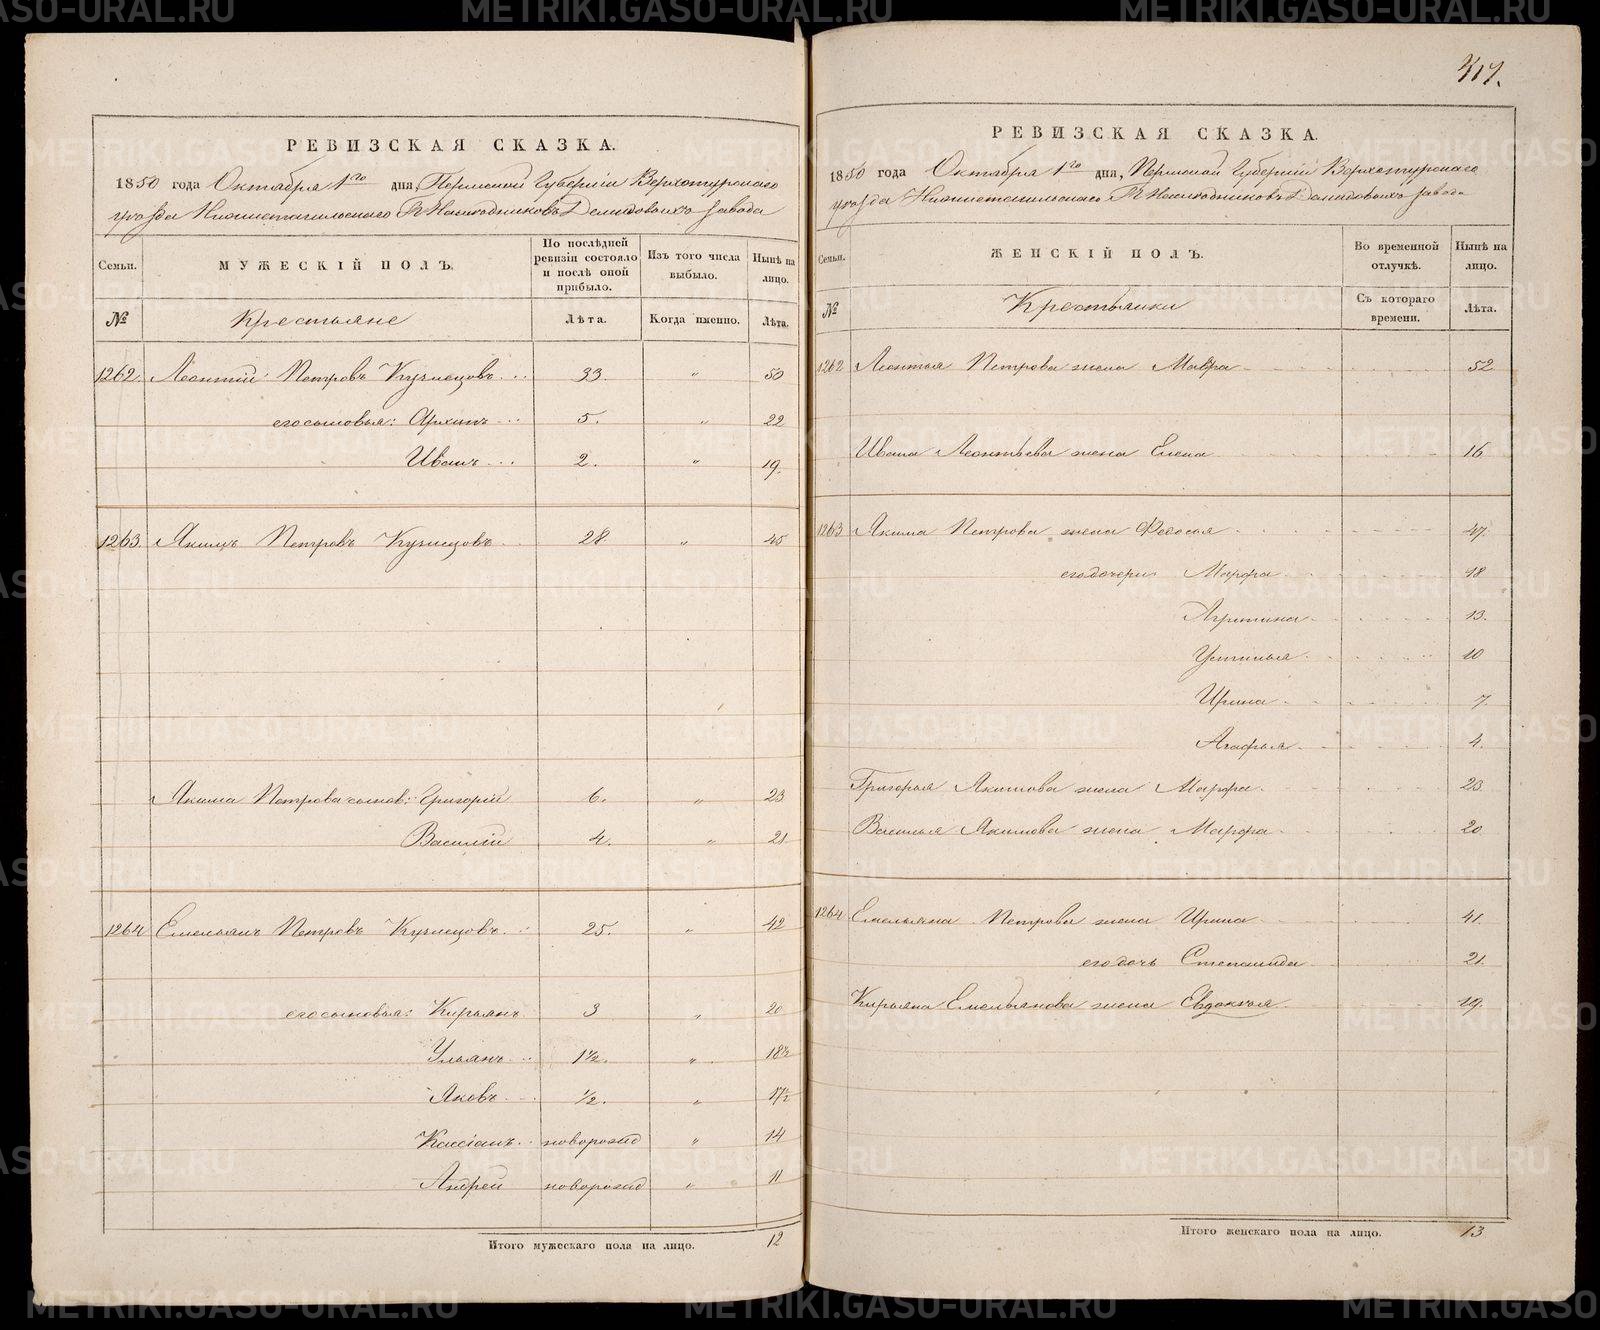 417.
РЕВИЗСКАЯ СКАЗКА.
1850 года Октября 1го дня, Пермской Губерніи Верхотурскаго
уѣзда Нижнетагильскаго Гг. Наслѣдниковъ Демидовыхъ завода
Семьи.
МУЖЕСКІЙ ПОЛЪ.
По послѣдней ревизіи состояло и послѣ оной прибыло.
Изъ того числа выбыло.
Нынѣ на лицо.
№ Крестьяне Лѣта. Когда именно. Лѣта.
1262. Леонтій Петровъ Кузнецовъ 33. " 50
его сыновья: Архипъ 5. " 22
Иванъ 2. " 19.
1263. Якимъ Петровъ Кузнецовъ 28. " 45
Якима Петрова сынов: Григорій 6. " 23
Василій 4. " 21
1264 Емельянъ Петровъ Кузнецовъ 25. " 42
его сыновья: Кирьянъ 3 " 20
Ульянъ 1½. " 18½
Яковъ ½. " 17½
Кассіанъ новорожд " 14
Андрей новорожд " 11
Итого мужескаго пола на лицо. 12
РЕВИЗСКАЯ СКАЗКА.
1850 года Октября 1го дня, Пермской Губерніи Верхотурскаго
уѣзда Нижнетагильскаго Гг. Наслѣдниковъ Демидовыхъ завода
Семьи.
ЖЕНСКІЙ ПОЛЪ.
Во временной отлучкѣ.
Нынѣ на лицо.
№ Крестьянки Съ котораго времени. Лѣта.
1262 Леонтья Петрова жена Мавра 52
Ивана Леонтьева жена Елена 16
1263 Якима Петрова жена Федосья 47.
его дочери: Марфа 18
Агрипина 13.
Устинья 10
Ирина 7.
Агафья 4.
Григорья Якимова жена Марфа 23.
Василья Якимова жена Марфа 20
1264 Емельяна Петрова жена Ирина 41.
его дочь Степанида 21.
Кирьяна Емельянова жена Евдокія 19.
Итого женскаго пола на лицо. 13
METRIKI.GASO-URAL.RU